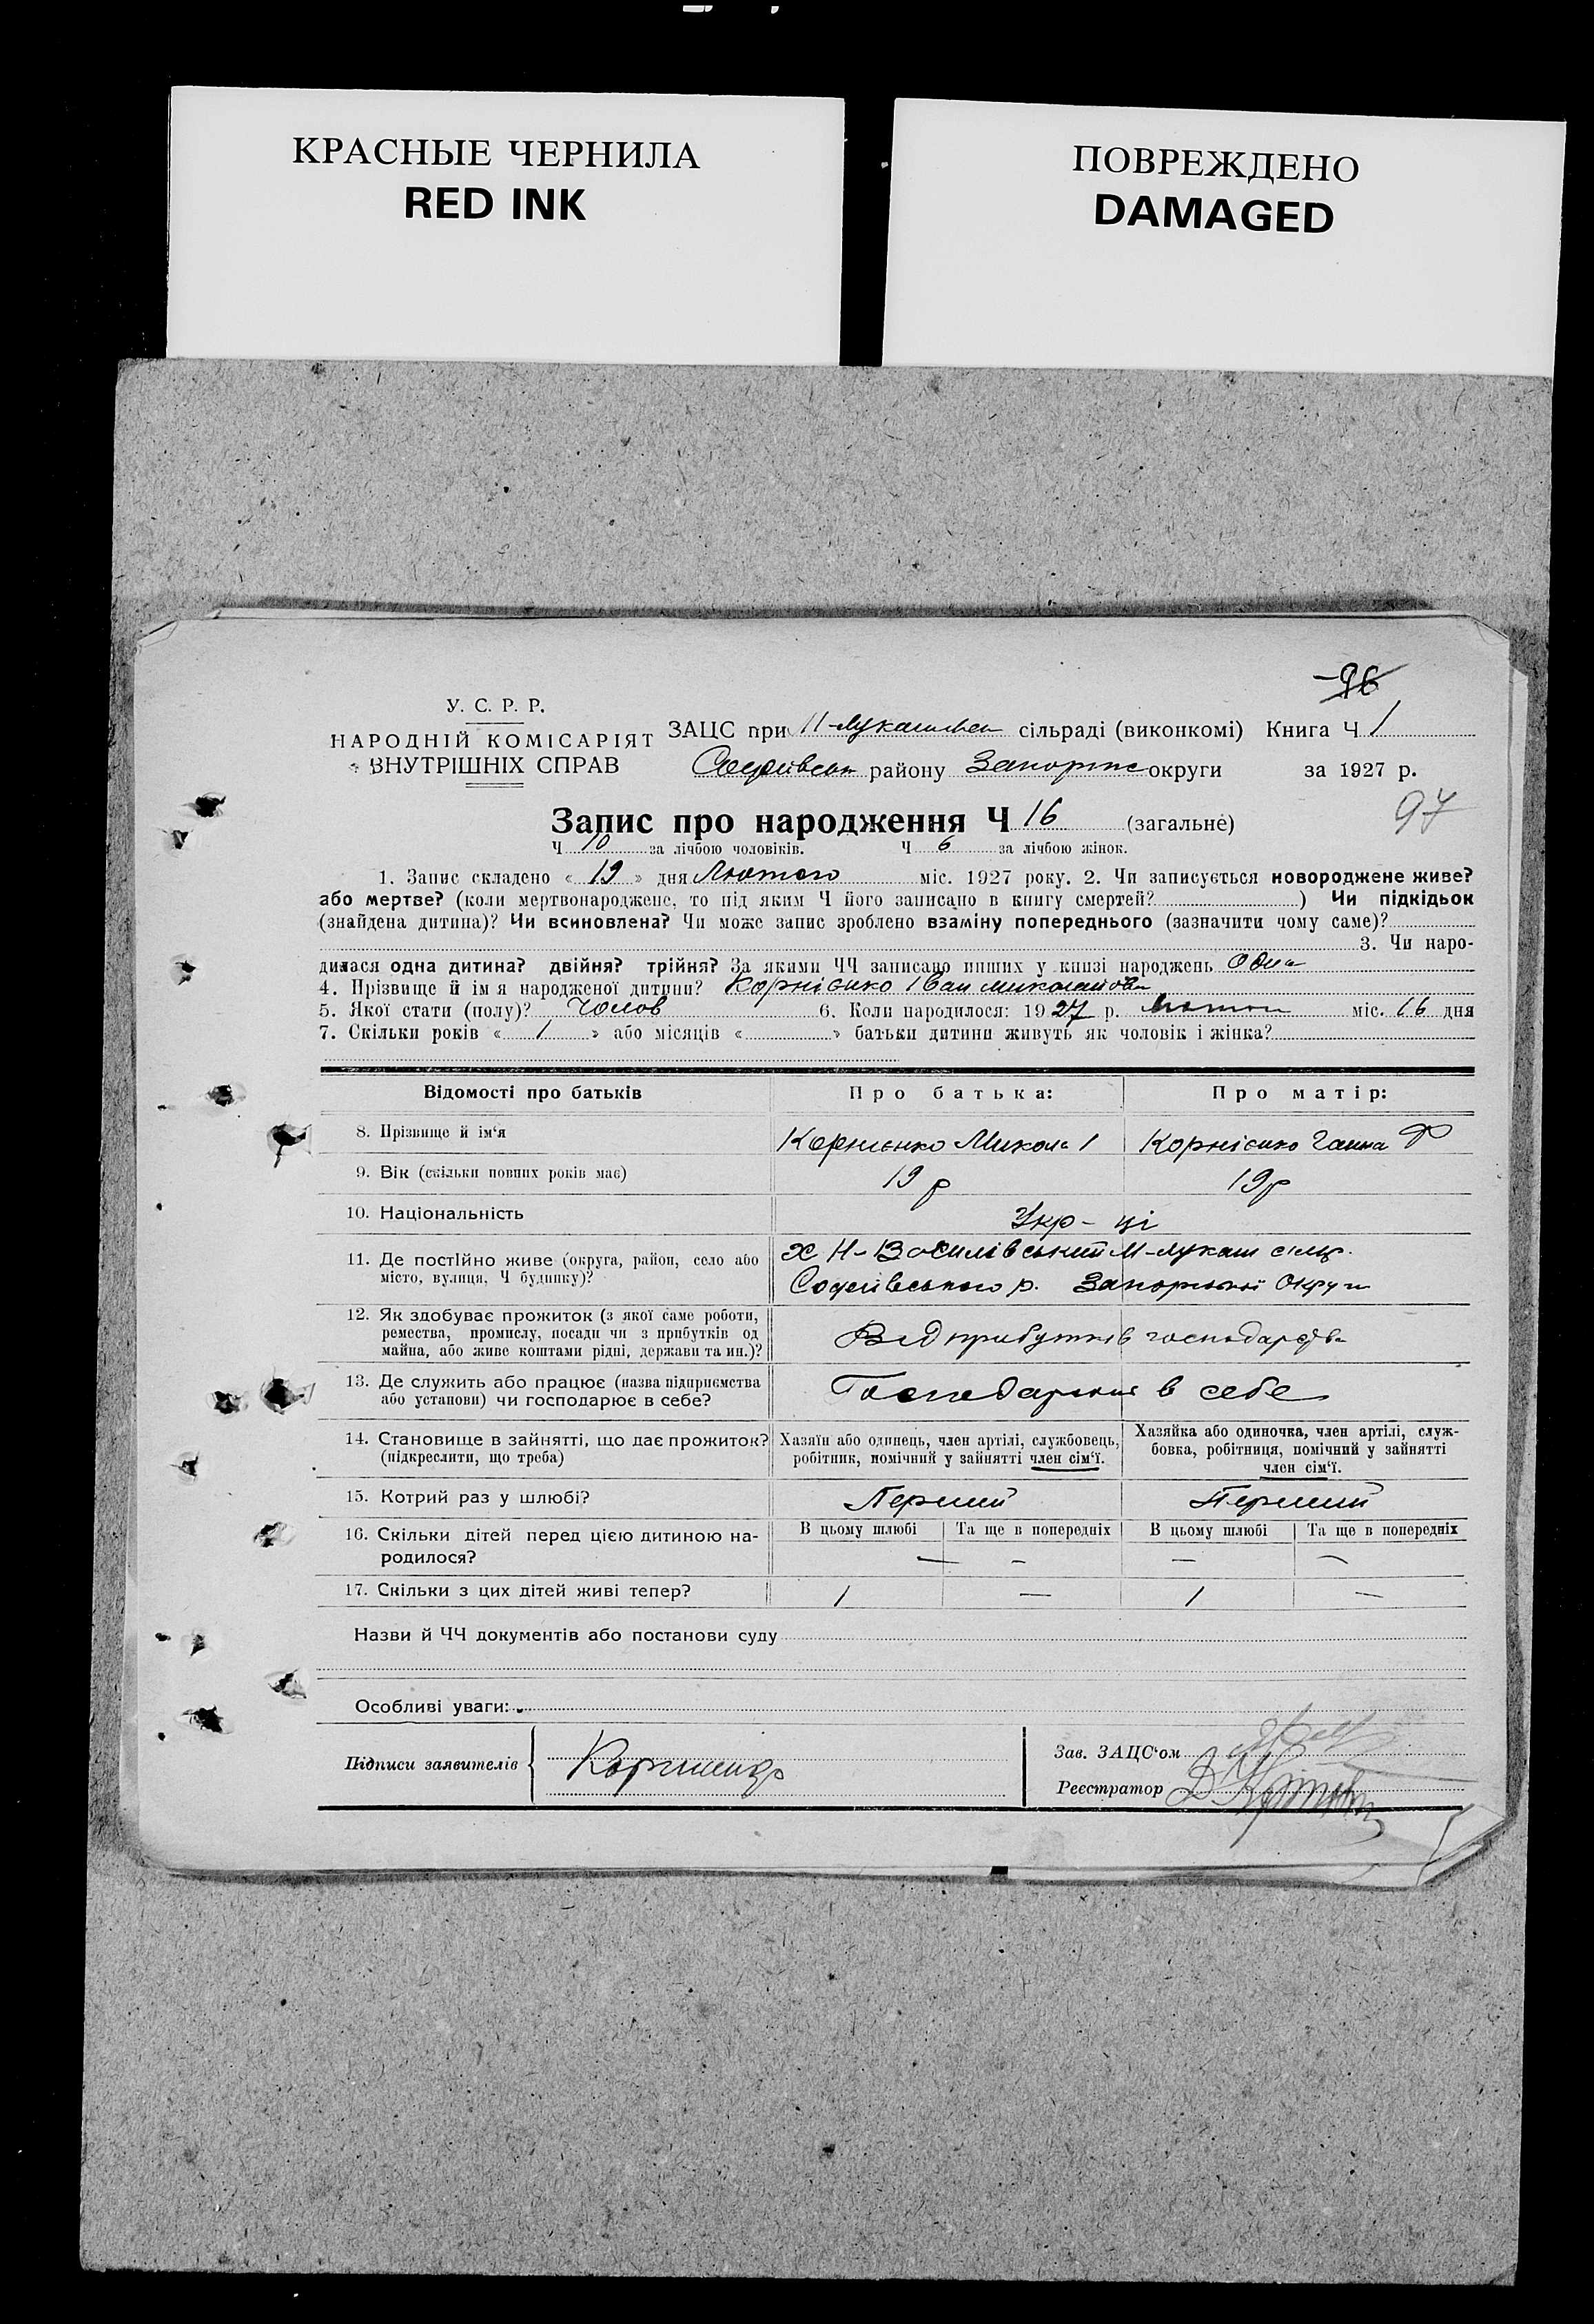 КРАСНЫЕ ЧЕРНИЛА
RED INK
ПОВРЕЖДЕНО
DAMAGED
96
У. С. Р. Р.
НАРОДНІЙ КОМІСАРІЯТ
ВНУТРІШНІХ СПРАВ
ЗАЦС при сільраді (виконкомі) Книга Ч 1
району округи за 1927 р.
97
Запис про народження Ч 16 (загальне)
Ч 10 за лічбою чоловіків. Ч 6 за лічбою жінок.
1. Запис складено « 19 » дня Лютого міс. 1927 року. 2. Чи записується новороджене живе?
або мертве? (коли мертвонароджене, то під яким Ч його записано в книгу смертей? ) Чи підкідьок
(знайдена дитина)? Чи всиновлена? Чи може запис зроблено взаміну попереднього (зазначити чому саме)?
3. Чи наро-
дилася одна дитина? двійня? трійня? За якими ЧЧ записано инших у книзі народжень одна
4. Прізвище й ім'я народженої дитини? Корнієнко Іван
5. Якої стати (полу)? Чолов 6. Коли народилося: 1927 р. міс. 16 дня
7. Скільки років « 1 » або місяців « » батьки дитини живуть як чоловік і жінка?
Відомості про батьків
Про батька:
Про матір:
8. Прізвище й ім'я
Корнієнко Микола І
Корнієнко Ганна Ф
9. Вік (скільки повних років має)
19 р
19 р
10. Національність
Укр-ці
11. Де постійно живе (округа, район, село або
місто, вулиця, Ч будинку)?
х Н-Василівський
Софіївського р. Округи
12. Як здобуває прожиток (з якої саме роботи,
ремества, промислу, посади чи з прибутків од
майна, або живе коштами рідні, держави та ин.)?
Від прибутків господарства
13. Де служить або працює (назва підприємства
або установи) чи господарює в себе?
в себе
14. Становище в зайнятті, що дає прожиток?
(підкреслити, що треба)
Хазяїн або одинець, член артілі, службовець,
робітник, помічний у зайнятті член сім'ї.
Хазяйка або одиночка, член артілі, служ-
бовка, робітниця, помічний у зайнятті
член сім'ї.
15. Котрий раз у шлюбі?
Перший
Перший
16. Скільки дітей перед цією дитиною на-
родилося?
В цьому шлюбі
Та ще в попередніх
В цьому шлюбі
Та ще в попередніх
— — — —
17. Скільки з цих дітей живі тепер?
1 — 1 —
Назви й ЧЧ документів або постанови суду
Особливі уваги:
Підписи заявителів
Корниенко
Зав. ЗАЦС'ом
Реєстратор